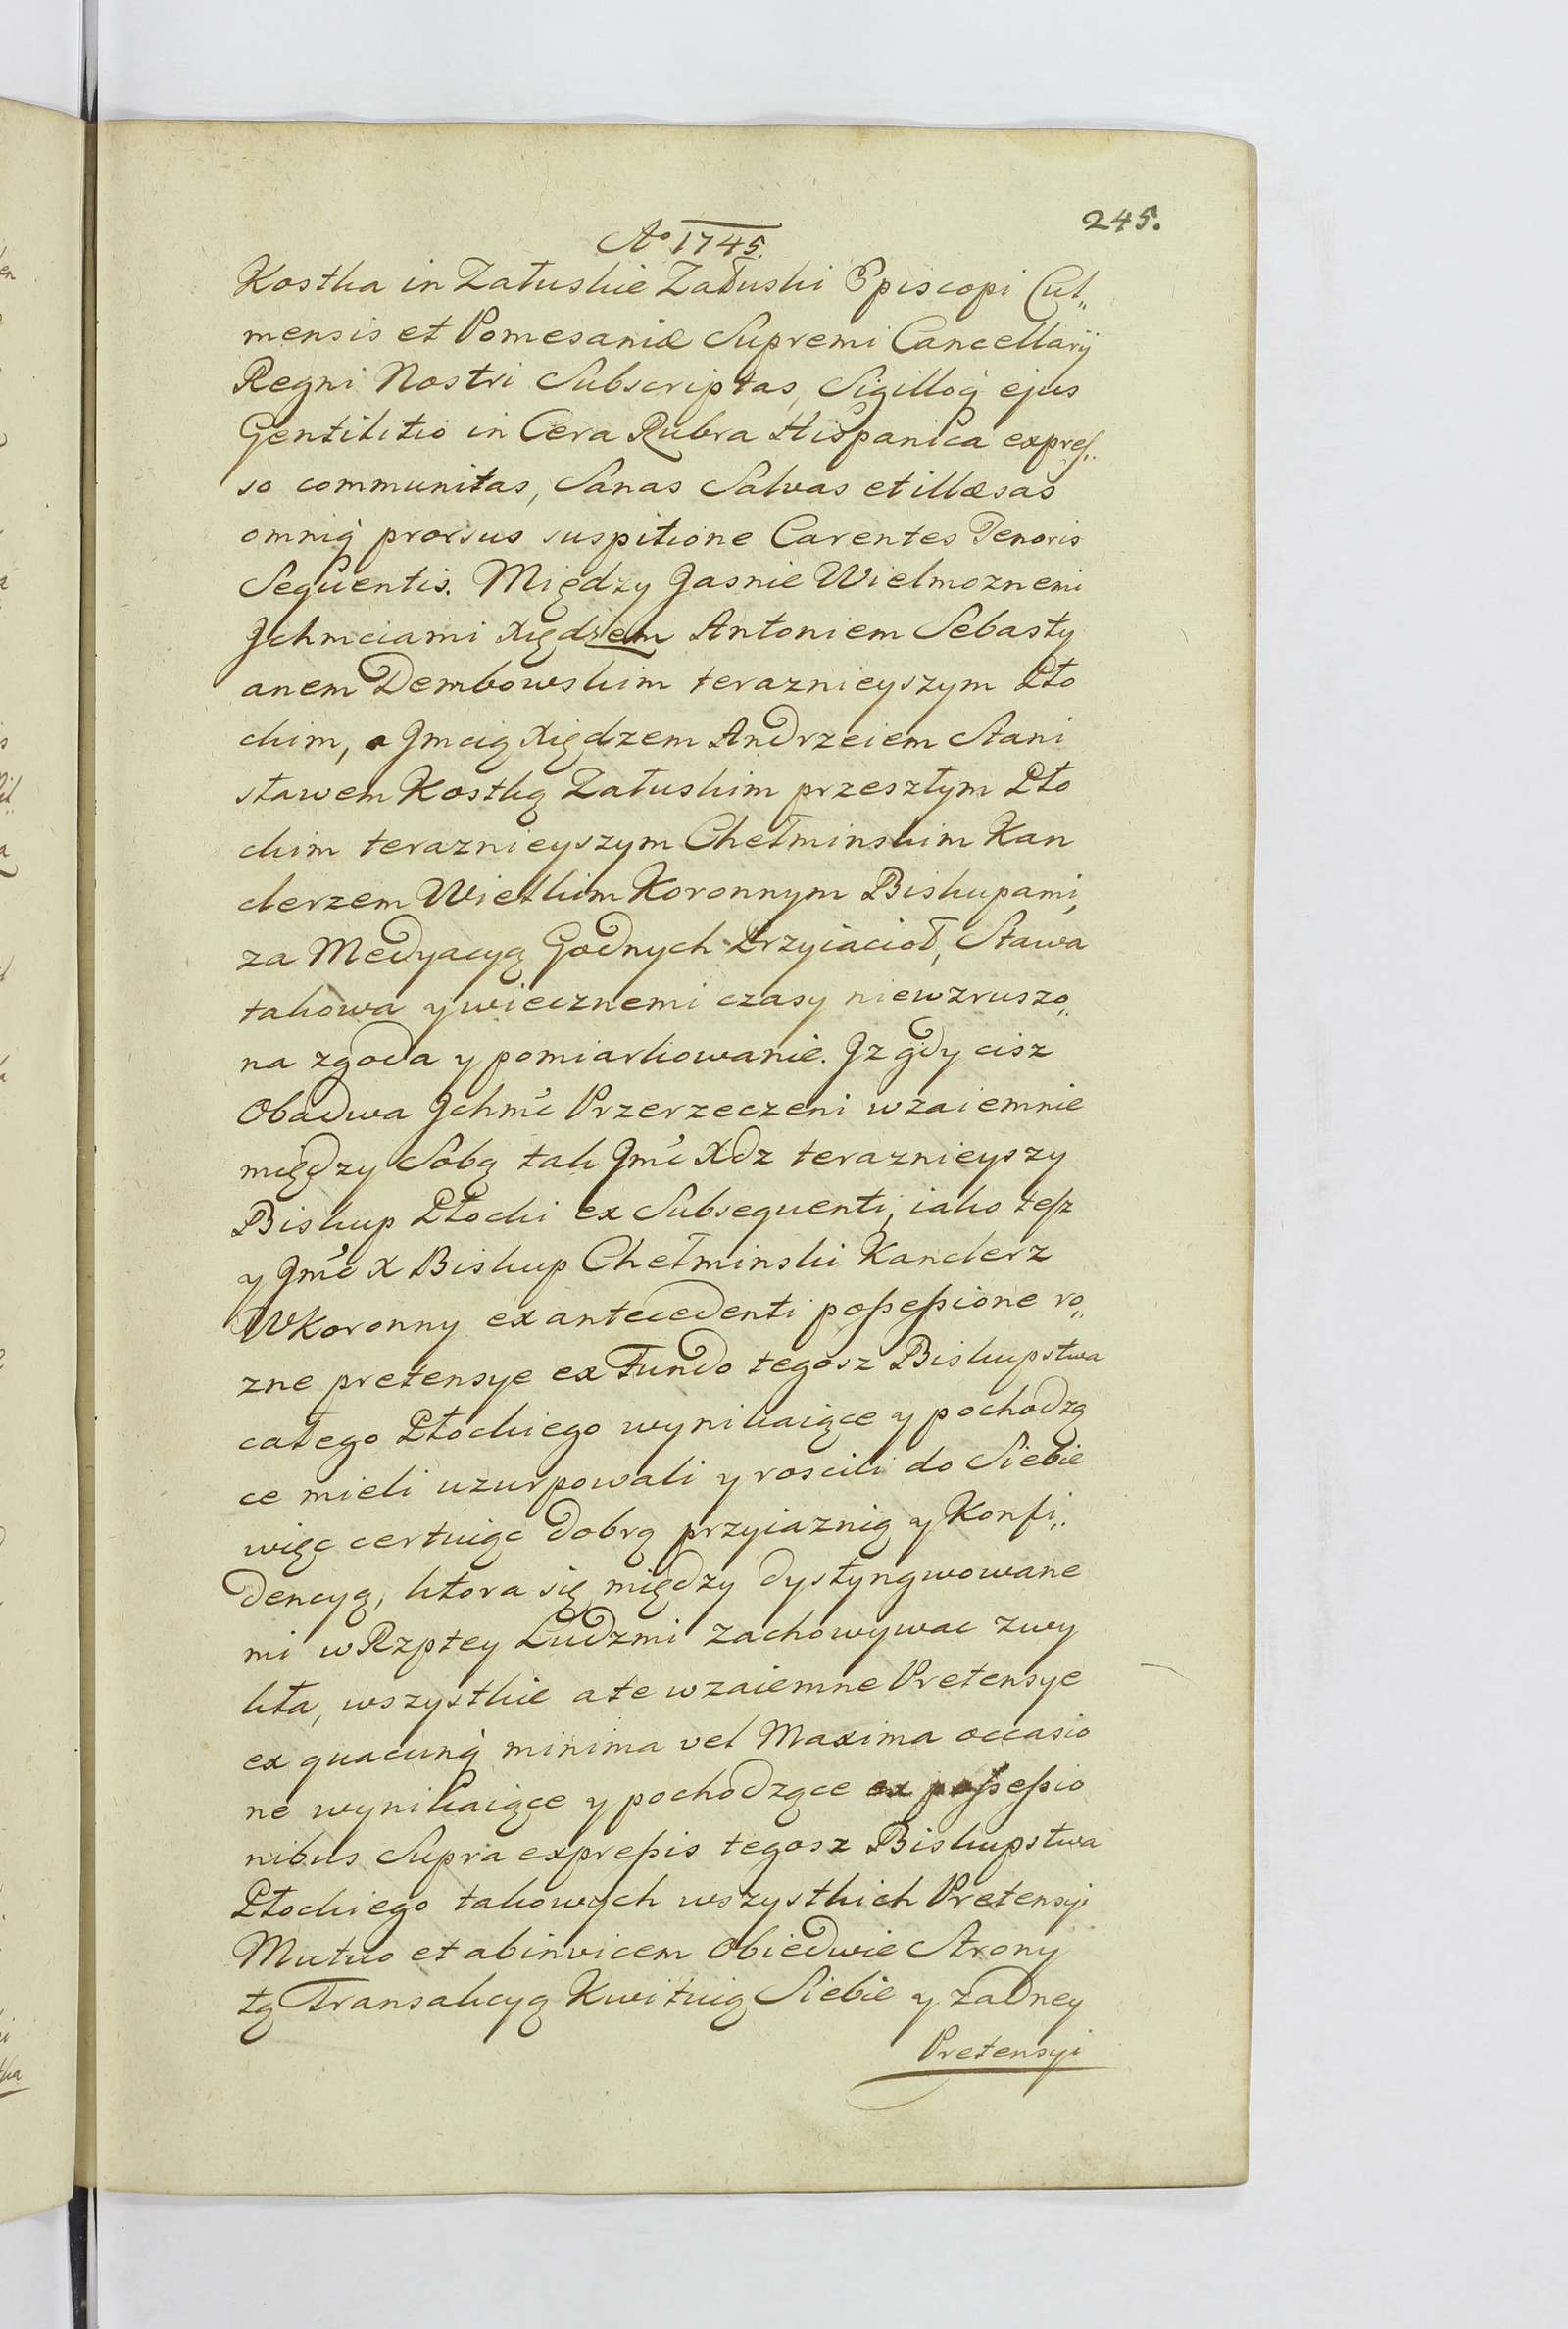 245.
Aº 1745.
Kostka in Załuskie Załuski Episcopi Cul„
mensis et Pomesaniæ Supremi Cancellarij
Regni Nostri Subscriptas, Sigilloq́ ejus
Gentilitio in Cera Rubra Hispanica expres„
so communitas, Sanas Salvas et illæsas
omniq́ prorsus suspitione Carentes Tenoris
Sequentis. Między Jasnie Wielmoznemi
Jchmciami Xiędzem Antoniem Sebasty
anem Dembowskim teraznieyszym Pło
ckim, a Jmcią Xiędzem Andrzeiem Stani
sławem Kostką Załuskim przeszłym Pło
ckim teraznieyszym Chełminskim Kan
clerzem Wielkim Koronnym Biskupami,
za Medyacyą Godnych Przyiacioł, Stawa
takowa y wiecznemi czasy niewzruszo„
na zgoda y pomiarkowanie. Jz gdy cisz
Obadwa Jchmć Przerzeczeni wzaiemnie
między Sobą tak Jmć Xdz teraznieyszy
Biskup Płocki ex Subsequenti, iako tesz
y Jmć X Biskup Chełminski Kanclerz
WKoronny ex antecedenti possessione ro„
zne pretensye ex Fundo tegosz Biskupstwa
całego Płockiego wynikaiące y pochodzą
ce mieli uzurpowali y roscili do Siebie
więc certuiąc dobrą przyiaznią y Konfi„
dencyą, ktora się między dystyngwowane
mi w Rzptey Ludzmi zachowywac zwy
kła, wszystkie a te wzaiemne Pretensye
ex quacunq́ minima vel Maxima occasio
ne wynikaiące y pochodzące ex possessio
nibus Supra expressis tegosz Biskupstwa
Płockiego takowych wszystkich Pretensyi
Mutuo et abinvicem Obiedwie Strony
tą Transakcyą Kwituią Siebie y zadney
Pretensyi